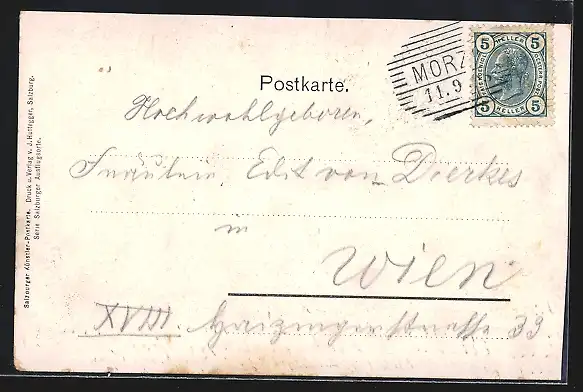 5 HELLER 5
5 HELLER 5
MORZ
11.9
Postkarte.
Hochwohlgeboren,
Fräulein Edit von Dierkes
in
Wien
XVIII. Haizingerstrasse 33
Salzburger Künstler-Postkarte. Druck u. Verlag v. J. Huttegger, Salzburg.
Serie Salzburger Ausflugsorte.